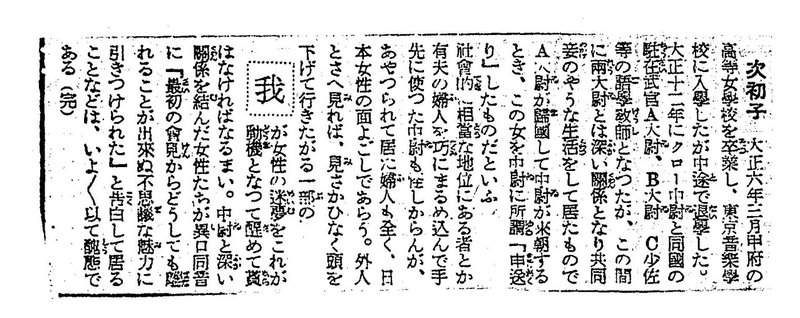 次初子　大正六年三月甲府の
高等女學校を卒業し、東京音樂學
校に入學したが中途で退學した。
大正十二年にクロー中尉と同國の
駐在武官A大尉、B大尉　C少佐
等の語學教師となつたが、この間
に兩大尉とは深い關係となり共同
妾のやうな生活をして居たもので
A大尉が歸國して中尉が來朝する
とき、この女を中尉に所謂『申送
り』したものだといふ
社會的に相當な地位にある者とか
有夫の婦人を巧にまるめ込んで手
先に使つた中尉も怪しからんが、
あやつられて居た婦人も全く、日
本女性の面よごしであらう。外人
とさへ見れば、見さかひなく頭を
下げて行きたがる一部の
我
が女性の迷夢をこれが
動機となつて醒めて貰
はなければなるまい。中尉と深い
關係を結んだ女性たちが異口同音
に『最初の會見からどうしても離
れることが出來ぬ不思議な魅力に
引きつけられた』と告白して居る
ことなどは、いよ〳〵以て醜態で
ある（完）